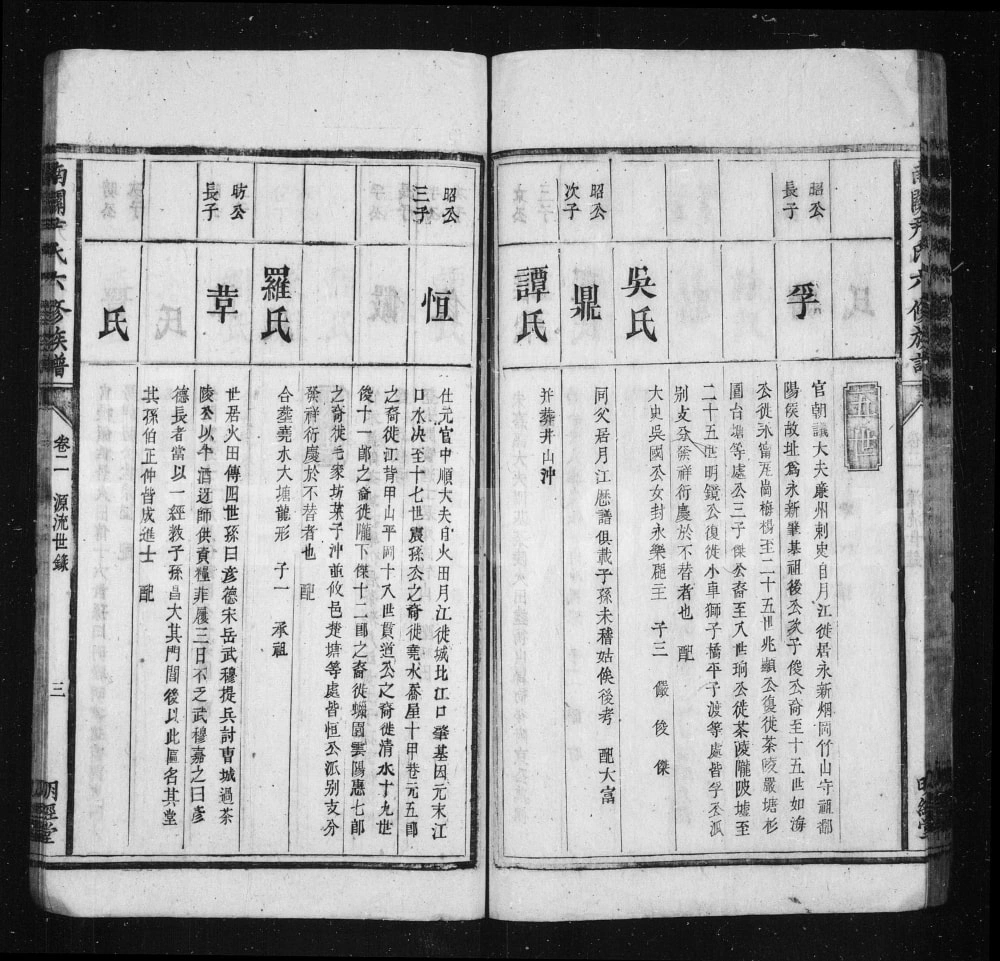 五世
昭公
長子
孚
官朝議大夫廉州刺史自月江徙居永新烟岡竹山守祖鄱
陽侯故址為永新肇基祖後公次子俊公裔至十五世如海
公徙永甯瓦崗梅楊至二十五世兆顯公復徙茶陵嚴塘杉
園台塘等處公三子傑公裔至八世珦公徙茶陵隴陂墟至
二十五世明鏡公復徙小車獅子橋平子渡等處皆孚公派
別支分發祥衍慶於不替者也 配
吳氏
大史吳國公女封永樂郡主 子三 儼 俊 傑
昭公
次子
鼎
同父居月江歷譜俱載子孫未稽姑俟後考 配大富
譚氏
并葬井山沖
昭公
三子
恒
仕元官中順大夫自火田月江徙城北江口肇基因元末江
口水決至十七世震孫公之裔徙堯水喬星十甲巷元五郎
之裔徙江背甲山平岡十八世貫道公之裔徙清水十九世
後十一郎之裔徙隴下傑十二郎之裔徙蝋園雲陽應七郎
之裔徙毛家坊菓子沖並攸邑楚塘等處皆恒公派別支分
發祥衍慶於不替者也 配
羅氏
合葬堯水大塘龍形 子一 承祖
昉公
長子
草
世居火田傳四世孫曰彦德宋岳武穆提兵討曹城過茶
陵公以牛酒迓師供資糧菲屨三日不乏武穆嘉之曰彦
德長者當以一經教子孫昌大其門閭後以此區名其堂
其孫伯正仲皆成進士 配
氏
南關尹氏六修族譜
卷二 源流世錄
三
明經堂